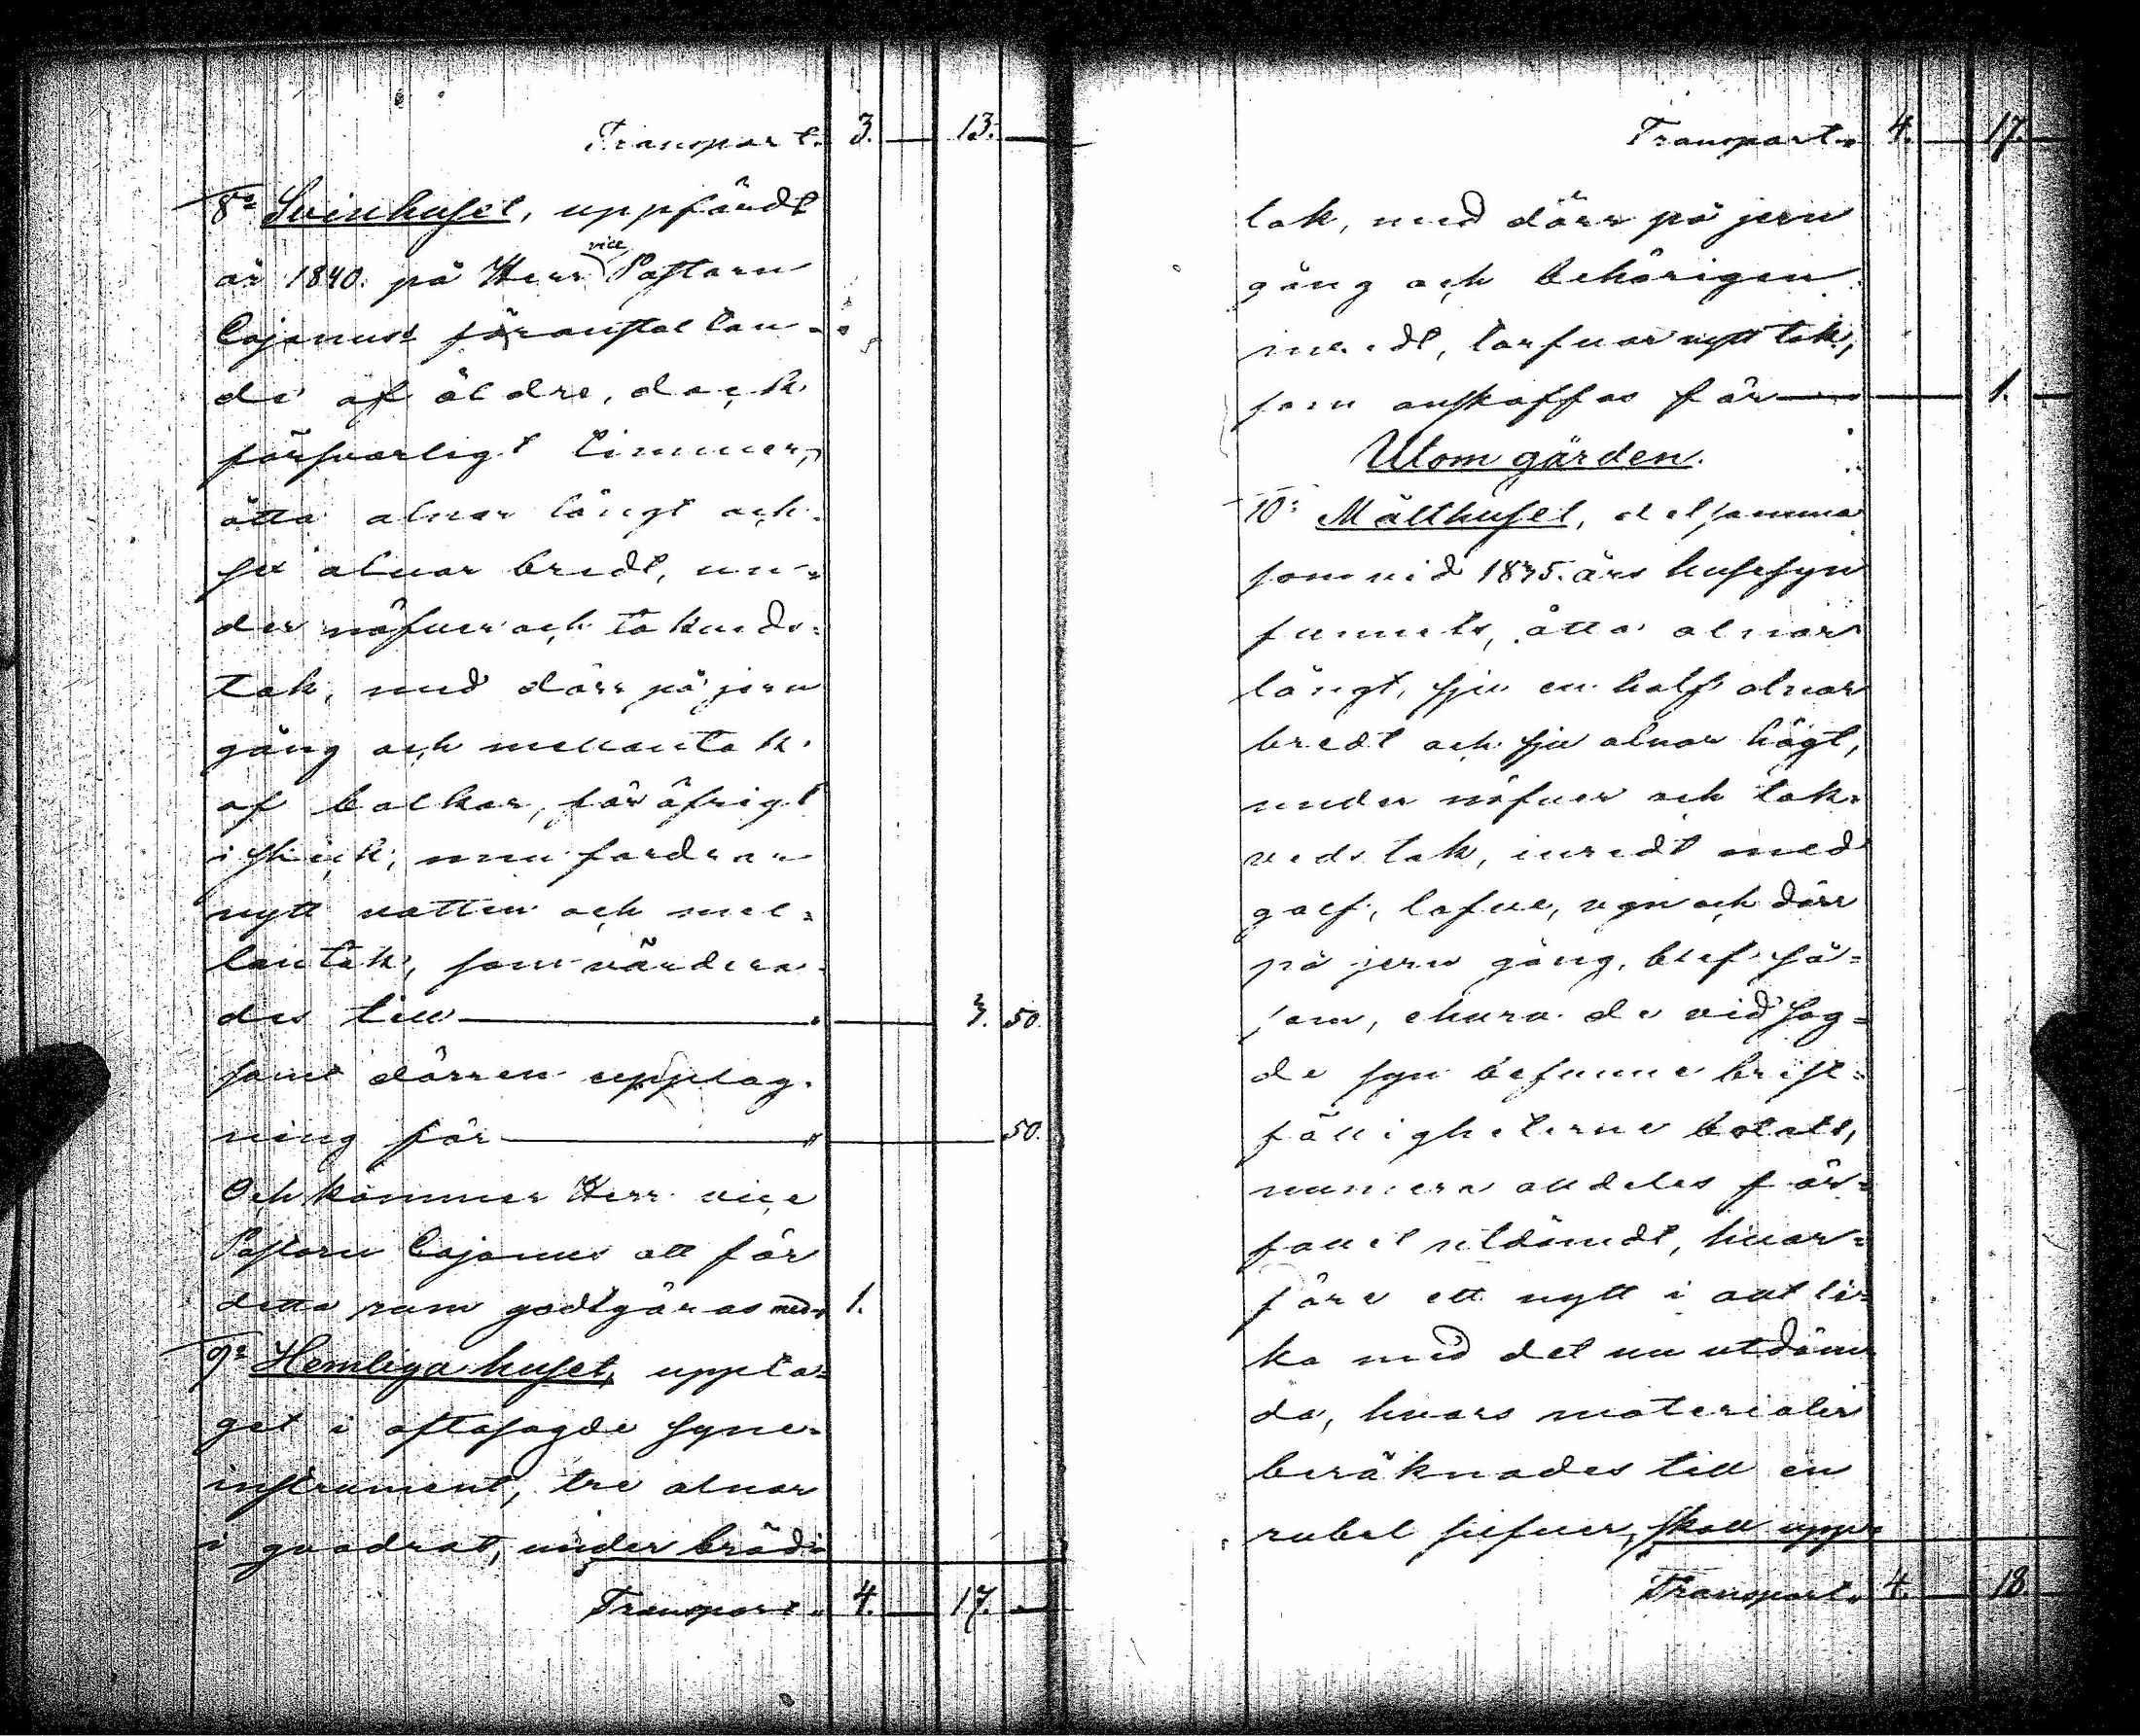 Transport. 3. — 13. —
8:o Svinhuset, uppfördt
år 1840. på Herr vice Pastorn
Cajanus's föranstaltan-
de af äldre, dock
försvarligt timmer,
åtta alnar långt och
sex alnar bredt, un=
der näfver och takveds=
tak, med dörr på jern
gång och mellantak
af balkar, för öfrigt
i skick, men fordran
nytt vatten och mel=
lantak, som värdera-
des till — 3. 50.
samt dörren upplag-
ning för — 50.
Och kommer Herr vice
Pastorn Cajanus att för
detta rum godtgöras med 1.
9:o Hemliga huset, uppta=
get i oftasagde syne-
instrument, tre alnar
i quadrat, under bräd=
Transport 4. — 17. —
Transport 4. — 17. —
tak, med dörr på jern
gång och behörigen
inredt, tarfvar nytt tak,
som anskaffas för — 1. —
Utom gården.
10: Mälthuset, detsamma
som vid 1835. års husesyn
funnits, åtta alnar
långt, sju en half alnar
bredt och sju alnar högt,
under näfver och tak-
vedstak, inredt med
golf, lafve, ugn och dörr
på jern gång, blef så=
som, ehuru de vid sag=
de syn befunne brist=
fälligheterne botats,
numera alldeles för=
fallet utdömdt, hvar=
före ett nytt i allt li=
ka med det nu utdöm
da, hvars materialier
beräknades till en
rubel silfver, skall upp=
Transport 4. — 18